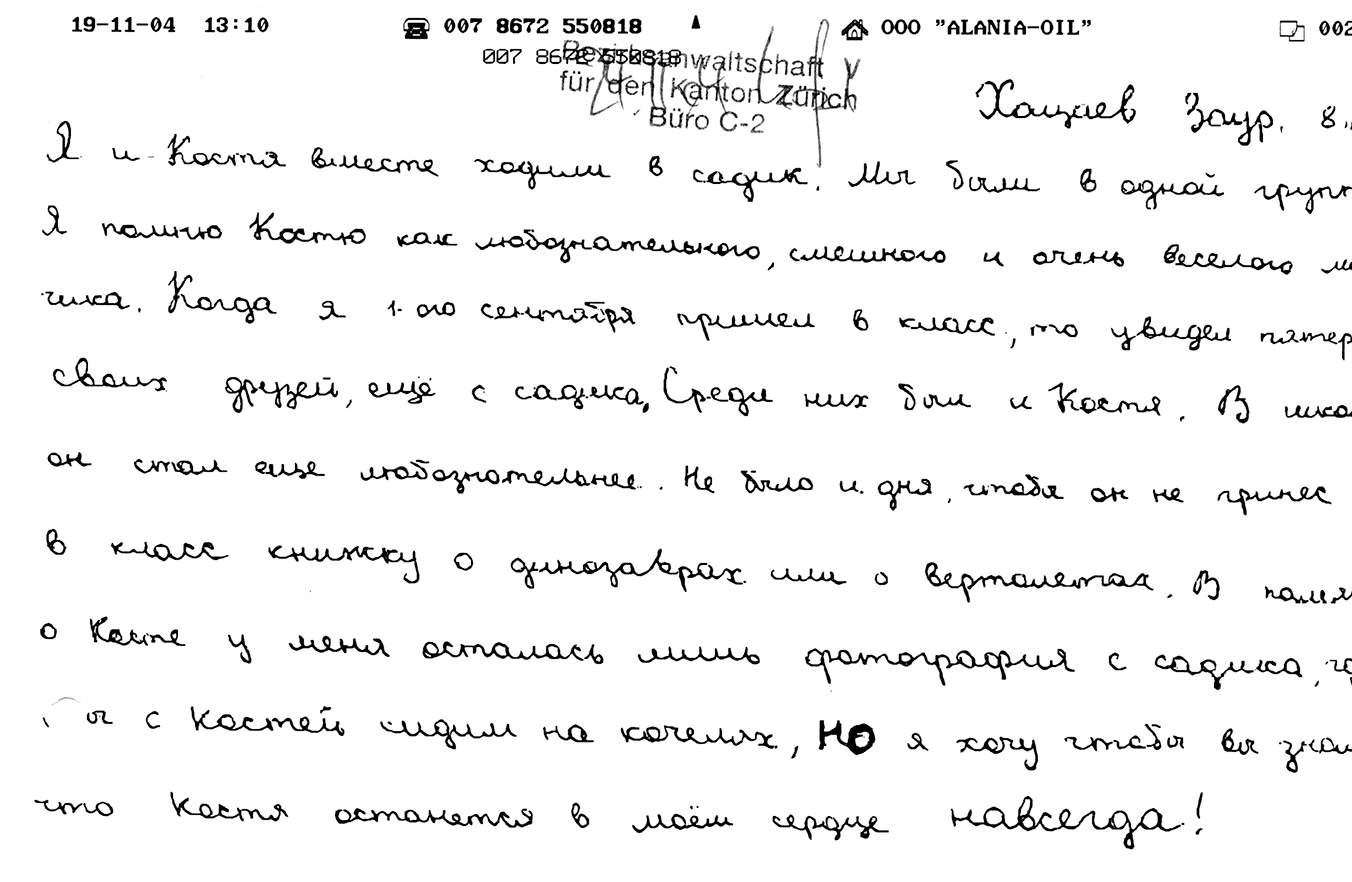 19-11-04 13:10 007 8672 550818 ООО "ALANIA-OIL" 002
007 8672 550818
Bezirksanwaltschaft
für den Kanton Zürich
Büro C-2
Хацаев Заур. 8
Я и Костя вместе ходили в садик. Мы были в одной групп
Я помню Костю как любознательного, смешного и очень веселого ма
чика. Когда я 1-ого сентября пришел в класс, то увидел пятер
своих друзей, ещё с садика, Среди них был и Костя. В шко
он стал еще любознательнее. Не было и дня, чтобы он не принес
в класс книжку о динозаврах или о вертолетах. В памя
о Косте у меня осталась лишь фотография с садика, гд
ы с Костей сидим на качелях, но я хочу чтобы вы знал
что Костя останется в моём сердце навсегда!